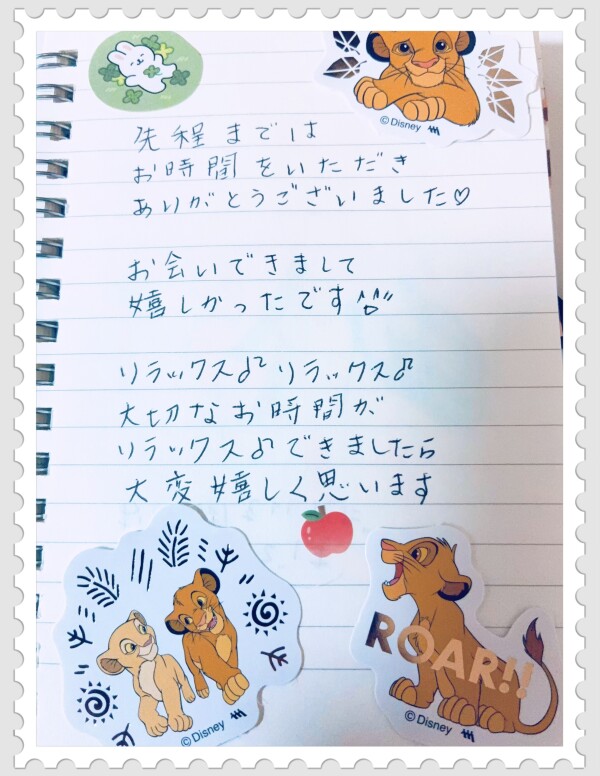 © Disney
先程までは
お時間をいただき
ありがとうございました♡
お会いできまして
嬉しかったです
リラックス♪リラックス♪
大切なお時間が
リラックス♪できましたら
大変嬉しく思います
ROAR!!
© Disney
© Disney